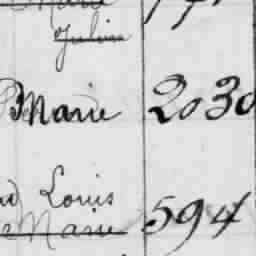 Marie
Julien
Marie 2030
Louis
Marie 594